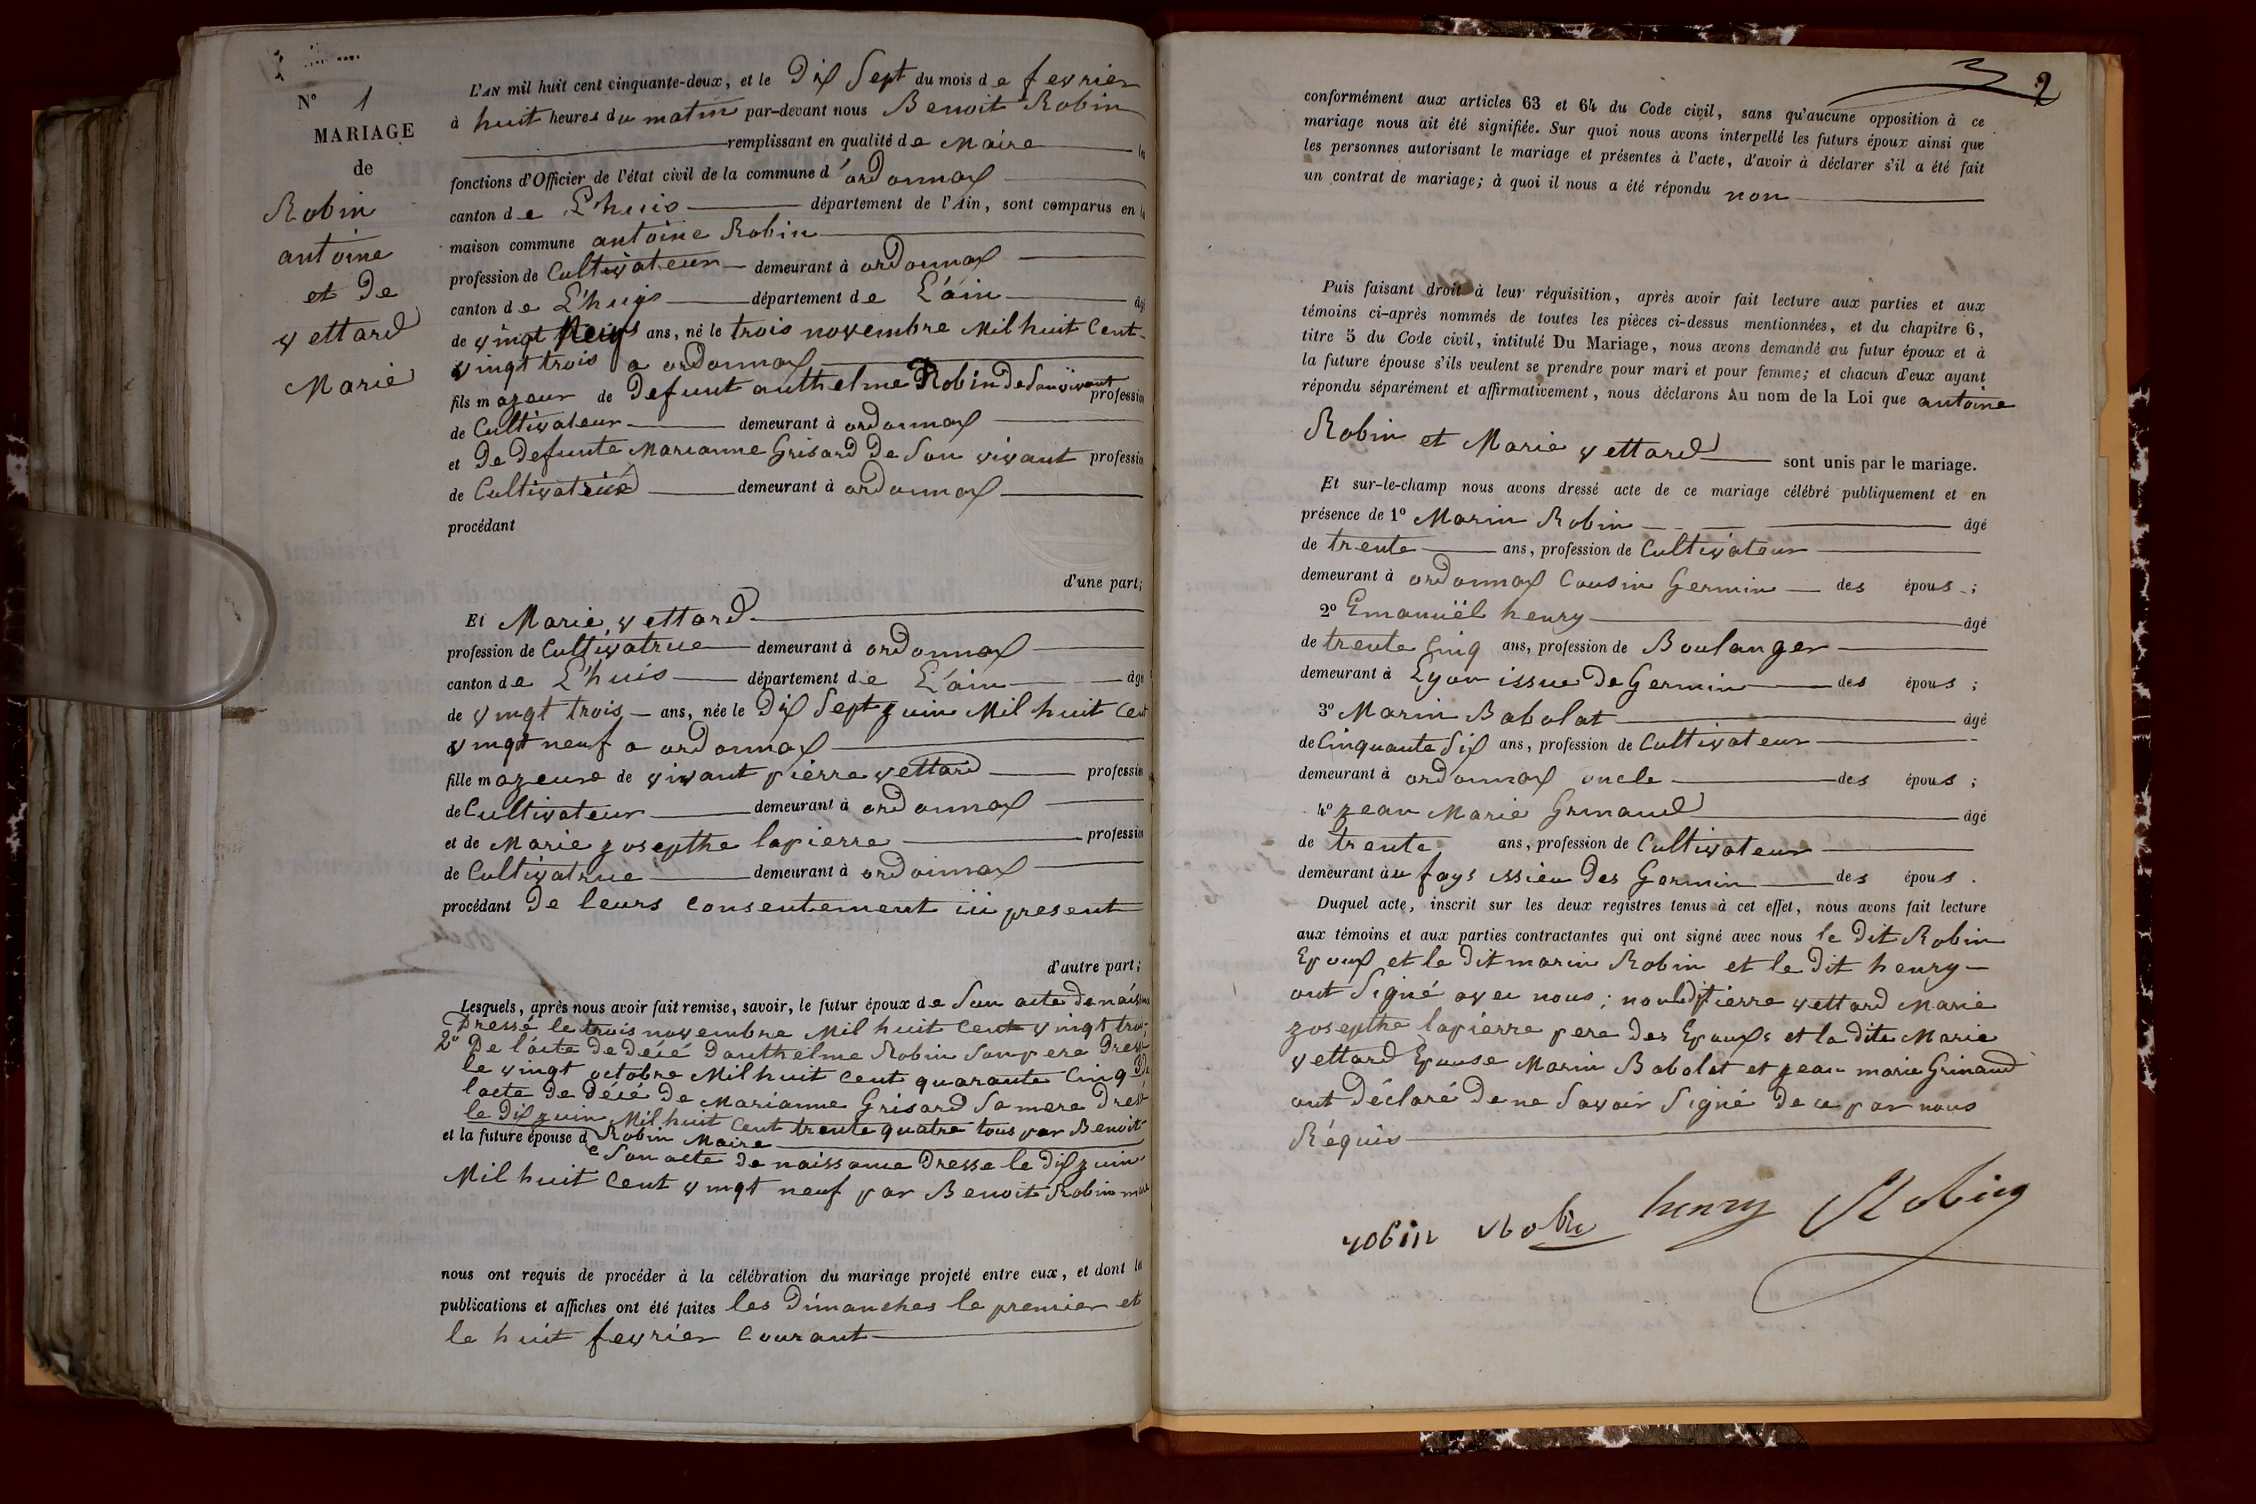 N° 1
MARIAGE
de
Robin
antoine
et de
vettard
Marie
L'AN mil huit cent cinquante-deux, et le Dix Sept du mois de fevrier
à huit heures du matin par-devant nous Benoit Robin
remplissant en qualité de Maire les
fonctions d'Officier de l'état civil de la commune d'ordonnax
canton de L'huis département de l'Ain, sont comparus en la
maison commune antoine Robin
profession de Cultivateur demeurant à ordonnax
canton de L'huis département de L'ain âgé
de vingt Neuf ans, né le trois novembre Mil huit Cent
vingt trois a ordonnax
fils mazeur de Defunt anthelme Robin De Son vivant profession
de Cultivateur demeurant à ordonnax
et De Defunte Marianne Grisard De Son vivant profession
de Cultivatrice demeurant à ordonnax
procédant
d'une part;
Et Marie vettard
profession de Cultivatrice demeurant à ordonnax
canton de L'huis département de L'ain âgé
de vingt trois ans, née le Dix Sept zuin Mil huit Cent
vingt neuf a ordonnax
fille mazeure de vivant pierre vettard profession
de Cultivateur demeurant à ordonnax
et de Marie zosepthe lapierre profession
de Cultivatrice demeurant à ordonnax
procédant De leurs Consentement ici present
d'autre part;
Lesquels, après nous avoir fait remise, savoir, le futur époux de Son acte De naissance
Dressé le trois novembre Mil huit Cent vingt trois;
2° De l'acte De Décé D'anthelme Robin Son pere Dressé
le vingt octobre Mil huit Cent quarante Cinq De
l'acte De Décé De Marianne Grisard Sa mere Dressé
le Dix zuin Mil huit Cent trente quatre tous par Benoit
Robin Maire
et la future épouse de Son acte De naissance Dresse le Dix zuin
Mil huit Cent vingt neuf par Benoit Robin maire
nous ont requis de procéder à la célébration du mariage projeté entre eux, et dont les
publications et affiches ont été faites les Dimanches le premier et
le huit fevrier Courant
2
conformément aux articles 63 et 64 du Code civil, sans qu'aucune opposition à ce
mariage nous ait été signifiée. Sur quoi nous avons interpellé les futurs époux ainsi que
les personnes autorisant le mariage et présentes à l'acte, d'avoir à déclarer s'il a été fait
un contrat de mariage; à quoi il nous a été répondu non
Puis faisant droit à leur réquisition, après avoir fait lecture aux parties et aux
témoins ci-après nommés de toutes les pièces ci-dessus mentionnées, et du chapitre 6,
titre 5 du Code civil, intitulé Du Mariage, nous avons demandé au futur époux et à
la future épouse s'ils veulent se prendre pour mari et pour femme; et chacun d'eux ayant
répondu séparément et affirmativement, nous déclarons Au nom de la Loi que antoine
Robin et Marie vettard sont unis par le mariage.
Et sur-le-champ nous avons dressé acte de ce mariage célébré publiquement et en
présence de 1° Marin Robin âgé
de trente ans, profession de Cultivateur
demeurant à ordonnax Cousin Germin des épous;
2° Emanuël henry âgé
de trente Cinq ans, profession de Boulanger
demeurant à Lyon issue De Germin des épous;
3° Marin Babolat âgé
de Cinquante Six ans, profession de Cultivateur
demeurant à ordonnax oncle des épous;
4° zean Marie Grinand âgé
de trente ans, profession de Cultivateur
demeurant àu fays issieu Des Germin des épous.
Duquel acte, inscrit sur les deux registres tenus à cet effet, nous avons fait lecture
aux témoins et aux parties contractantes qui ont signé avec nous le Dit Robin
Epoux et le Dit marin Robin et le Dit henry
ont Signé avec nous; pierre vettard Marie
zosepthe lapierre pere Des Epouxs et la Dite Marie
vettard Epouse Marin Babolat et zean marie Grinand
ont Déclaré De ne Savoir Signé De ce par nous
Réquis
robin Robin henry Robin